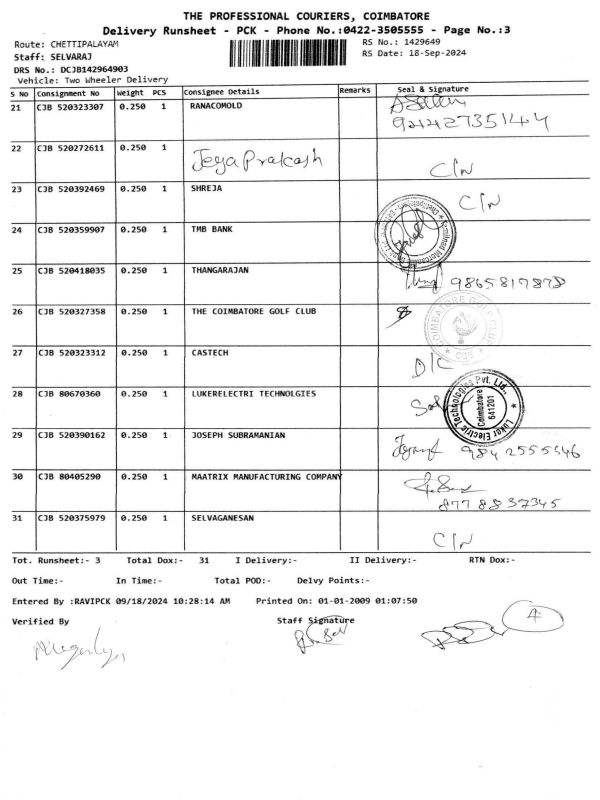 THE PROFESSIONAL COURIERS, COIMBATORE
Delivery Runsheet - PCK - Phone No.:0422-3505555 - Page No.:3
Route: CHETTIPALAYAM RS No.: 1429649
Staff: SELVARAJ RS Date: 18-Sep-2024
DRS No.: DCJB142964903
Vehicle: Two Wheeler Delivery
S No Consignment No Weight PCS Consignee Details Remarks Seal & Signature
21 CJB 520323307 0.250 1 RANACOMOLD
22 CJB 520272611 0.250 1 Jeya Prakash C/N
23 CJB 520392469 0.250 1 SHREJA C/N
24 CJB 520359907 0.250 1 TMB BANK
25 CJB 520418035 0.250 1 THANGARAJAN 9865817878
26 CJB 520327358 0.250 1 THE COIMBATORE GOLF CLUB COIMBATORE GOLF CLUB
27 CJB 520323312 0.250 1 CASTECH D/C
28 CJB 80670360 0.250 1 LUKERELECTRI TECHNOLGIES Luker Electric Technologies Pvt. Ltd., Coimbatore 641201
29 CJB 520390162 0.250 1 JOSEPH SUBRAMANIAN 9842555546
30 CJB 80405290 0.250 1 MAATRIX MANUFACTURING COMPANY 8778837345
31 CJB 520375979 0.250 1 SELVAGANESAN C/N
Tot. Runsheet:- 3 Total Dox:- 31 I Delivery:- II Delivery:- RTN Dox:-
Out Time:- In Time:- Total POD:- Delvy Points:-
Entered By :RAVIPCK 09/18/2024 10:28:14 AM Printed On: 01-01-2009 01:07:50
Verified By Staff Signature
4